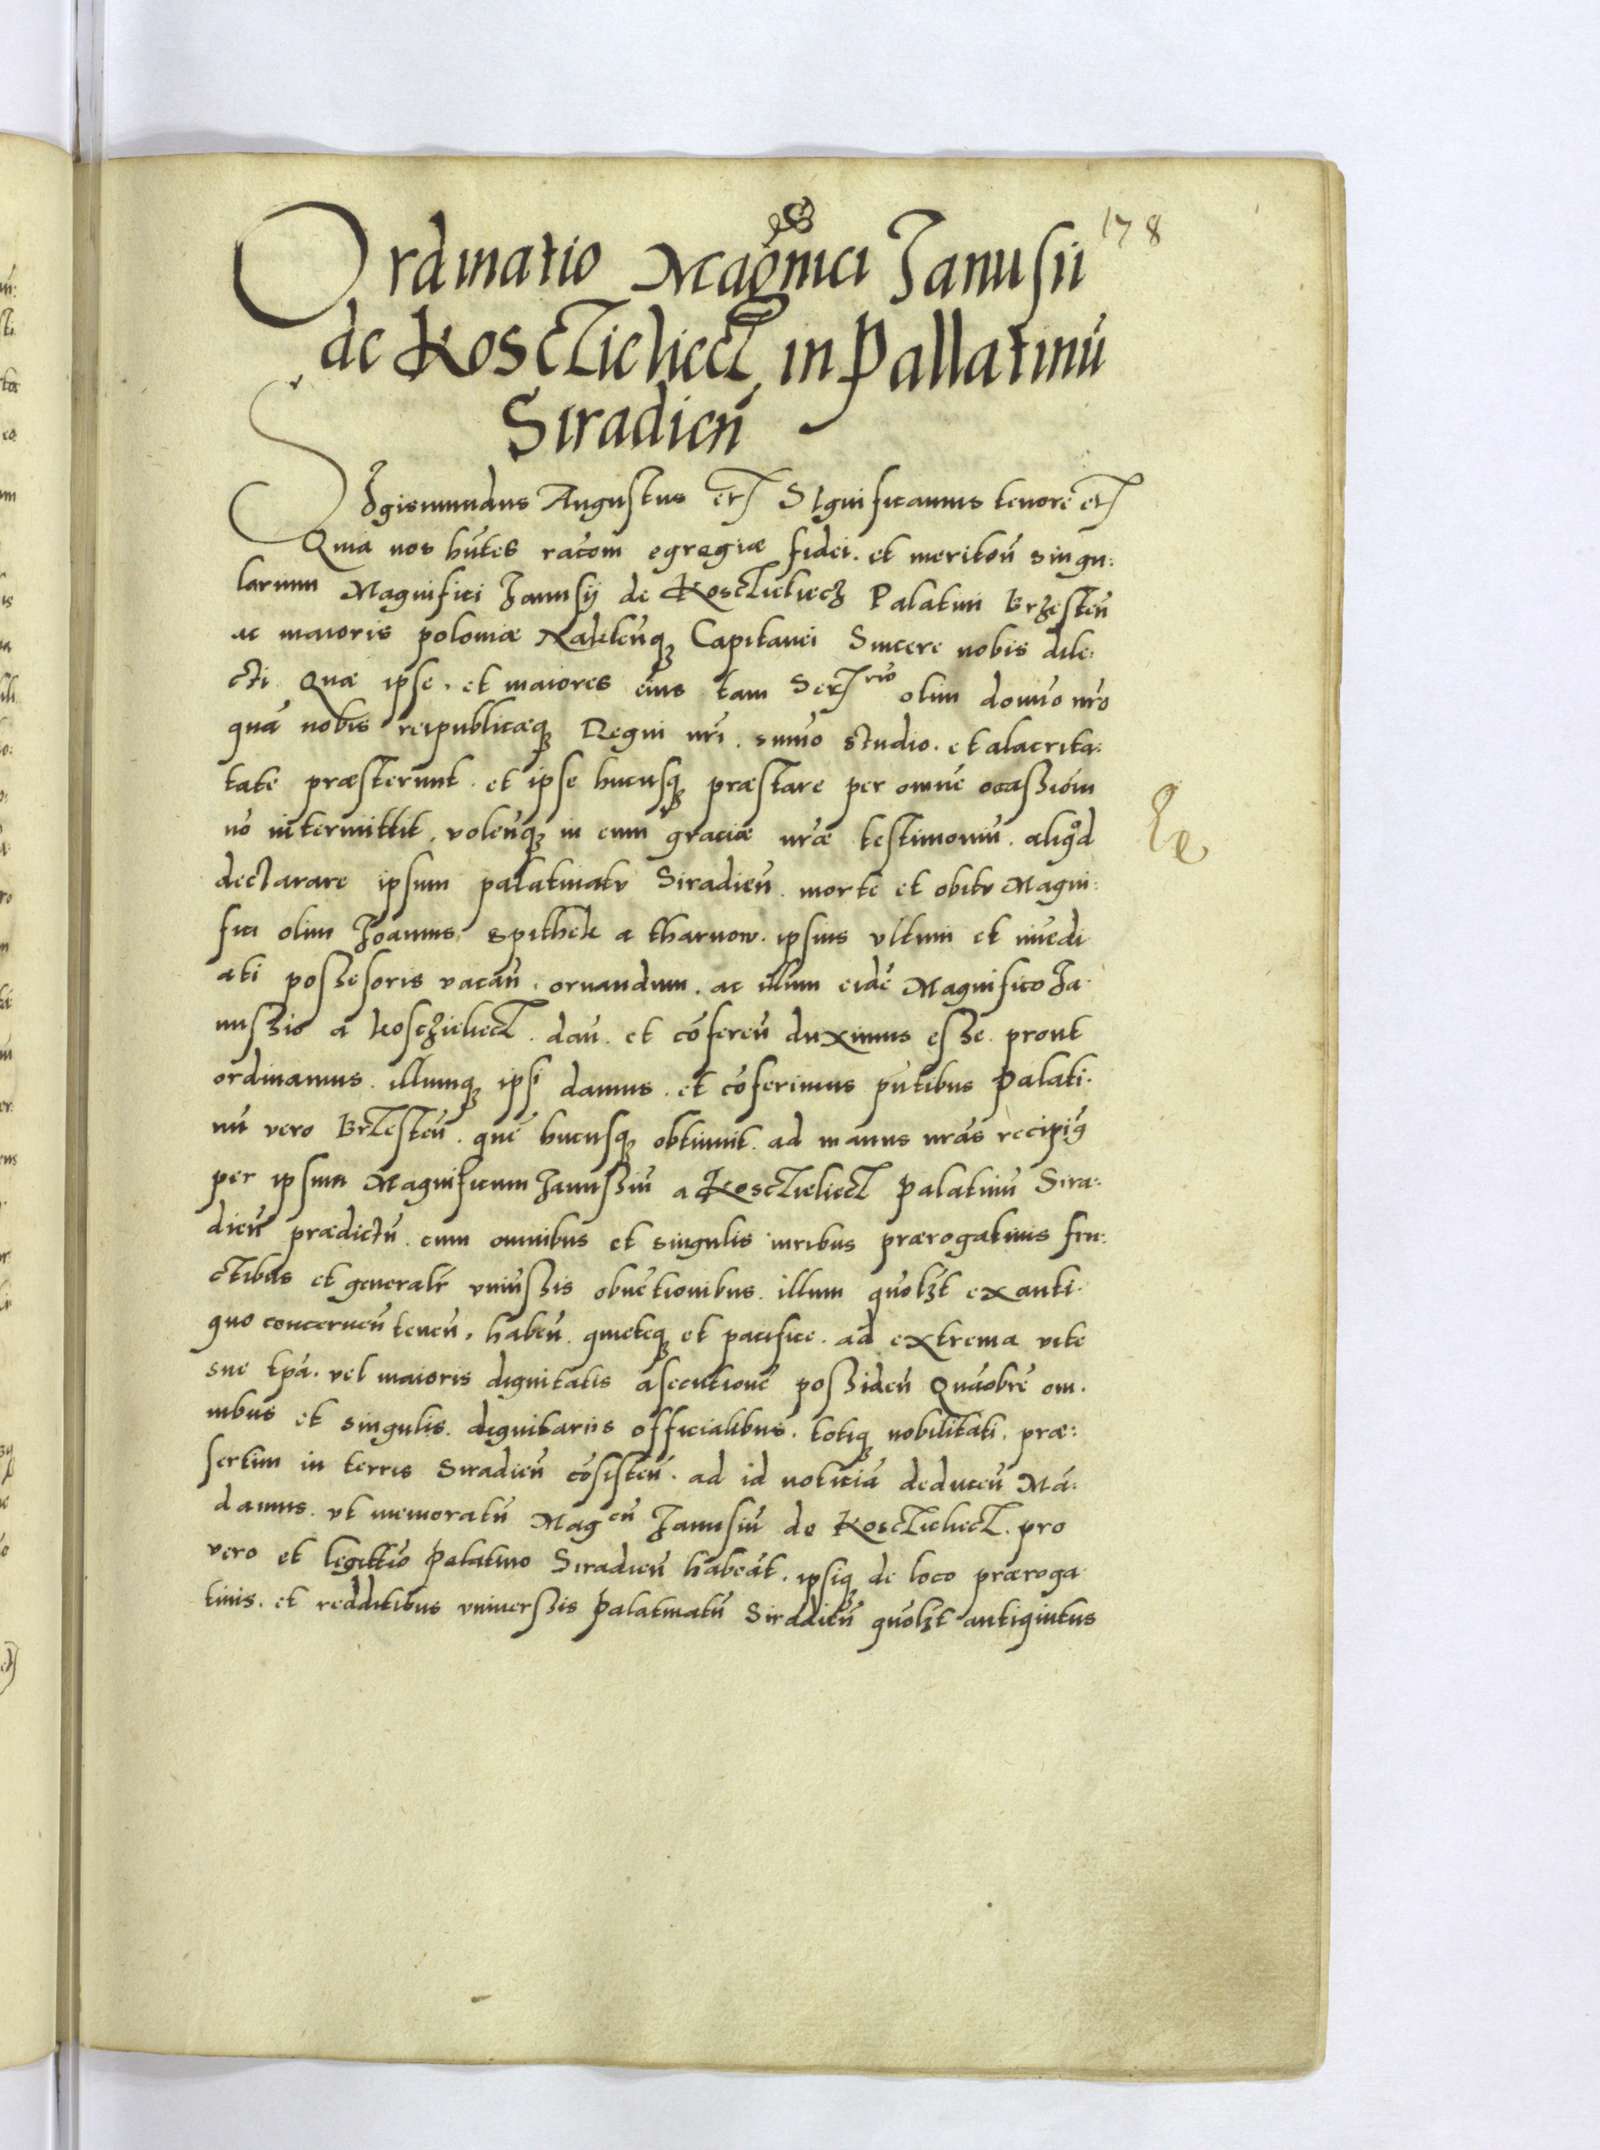 178
Ordinatio Magnici Janusii
de Kosczieliecz in Pallatinū
Siradien̄
Sigismundus Augustus etc Significamus tenore etc
Quia nos hn̄tes rac̄om egregiæ fidei. et meritorū singu:
larium Magnifici Janusij de Kosczieliecz Palatini Brzesten̄
ac maioris poloniæ Naklen̄q3 Capitanei Sincere nobis dile:
cti. Quæ ipse. et maiores eius tam Ser mo olim domīo nr̄o
quā nobis reipublicæq3 Regni nr̄i. sum̄o studio. et alacrita:
tate præsterunt. et ipse hucusq3 præstare per omnē ocassiōm
nō intermittit. volen̄q3 in eum graciæ nr̄æ testimoniū. aliq̊d
declarare ipsum palatinatu Siradien̄. morte et obitu Magni:
fici olim Joannis Spithek a tharnow. ipsius vltimi et im̄edi
ati possesoris vacan̄. ornandum. ac illum eidē Magnifico Ja:
nussio a Kosczieliecz. dan̄. et cōferen̄ duximus esse. prout
ordinamus. illumq3 ipsi damus. et cōferimus pn̄tibus Palati:
nū vero Brzesten̄. quē hucusq3 obtinuit. ad manus nr̄as recipiē
per ipsum Magnificum Janussiū a Kosczieliecz Palatinū Sira:
dien̄ prædictū. cum omnibus et singulis iuribus prærogatiuis fru:
ctibus et generalr̄ vniūssis obuētionibus. illum quōlzt ex anti:
quo concernen̄ tenen̄. haben̄. quieteq3 et pacifice. ad extrema vite
sue tp̄a. vel maioris dignitatis asecutionē possiden̄ Quāobrē om:
nibus et singulis. dignitariis officialibus. totiq3 nobilitati. præ:
sertim in terris Siradien̄ cōsisten̄. ad id noticiā deducen̄ Mā:
damus. vt memoratū Mag cū Janusiū de Kosczieliecz. pro
vero et legittīo Palatino Siradien̄ habeāt. ipsiq3 de loco præroga
tiuis. et redditibus vniuersis Palatinatū Siradien̄ quōlzt antiquitus